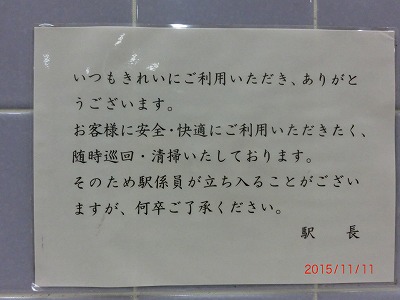 いつもきれいにご利用いただき、ありがと
うございます。
お客様に安全・快適にご利用いただきたく、
随時巡回・清掃いたしております。
そのため駅係員が立ち入ることがござい
ますが、何卒ご了承ください。
駅　長
2015/11/11